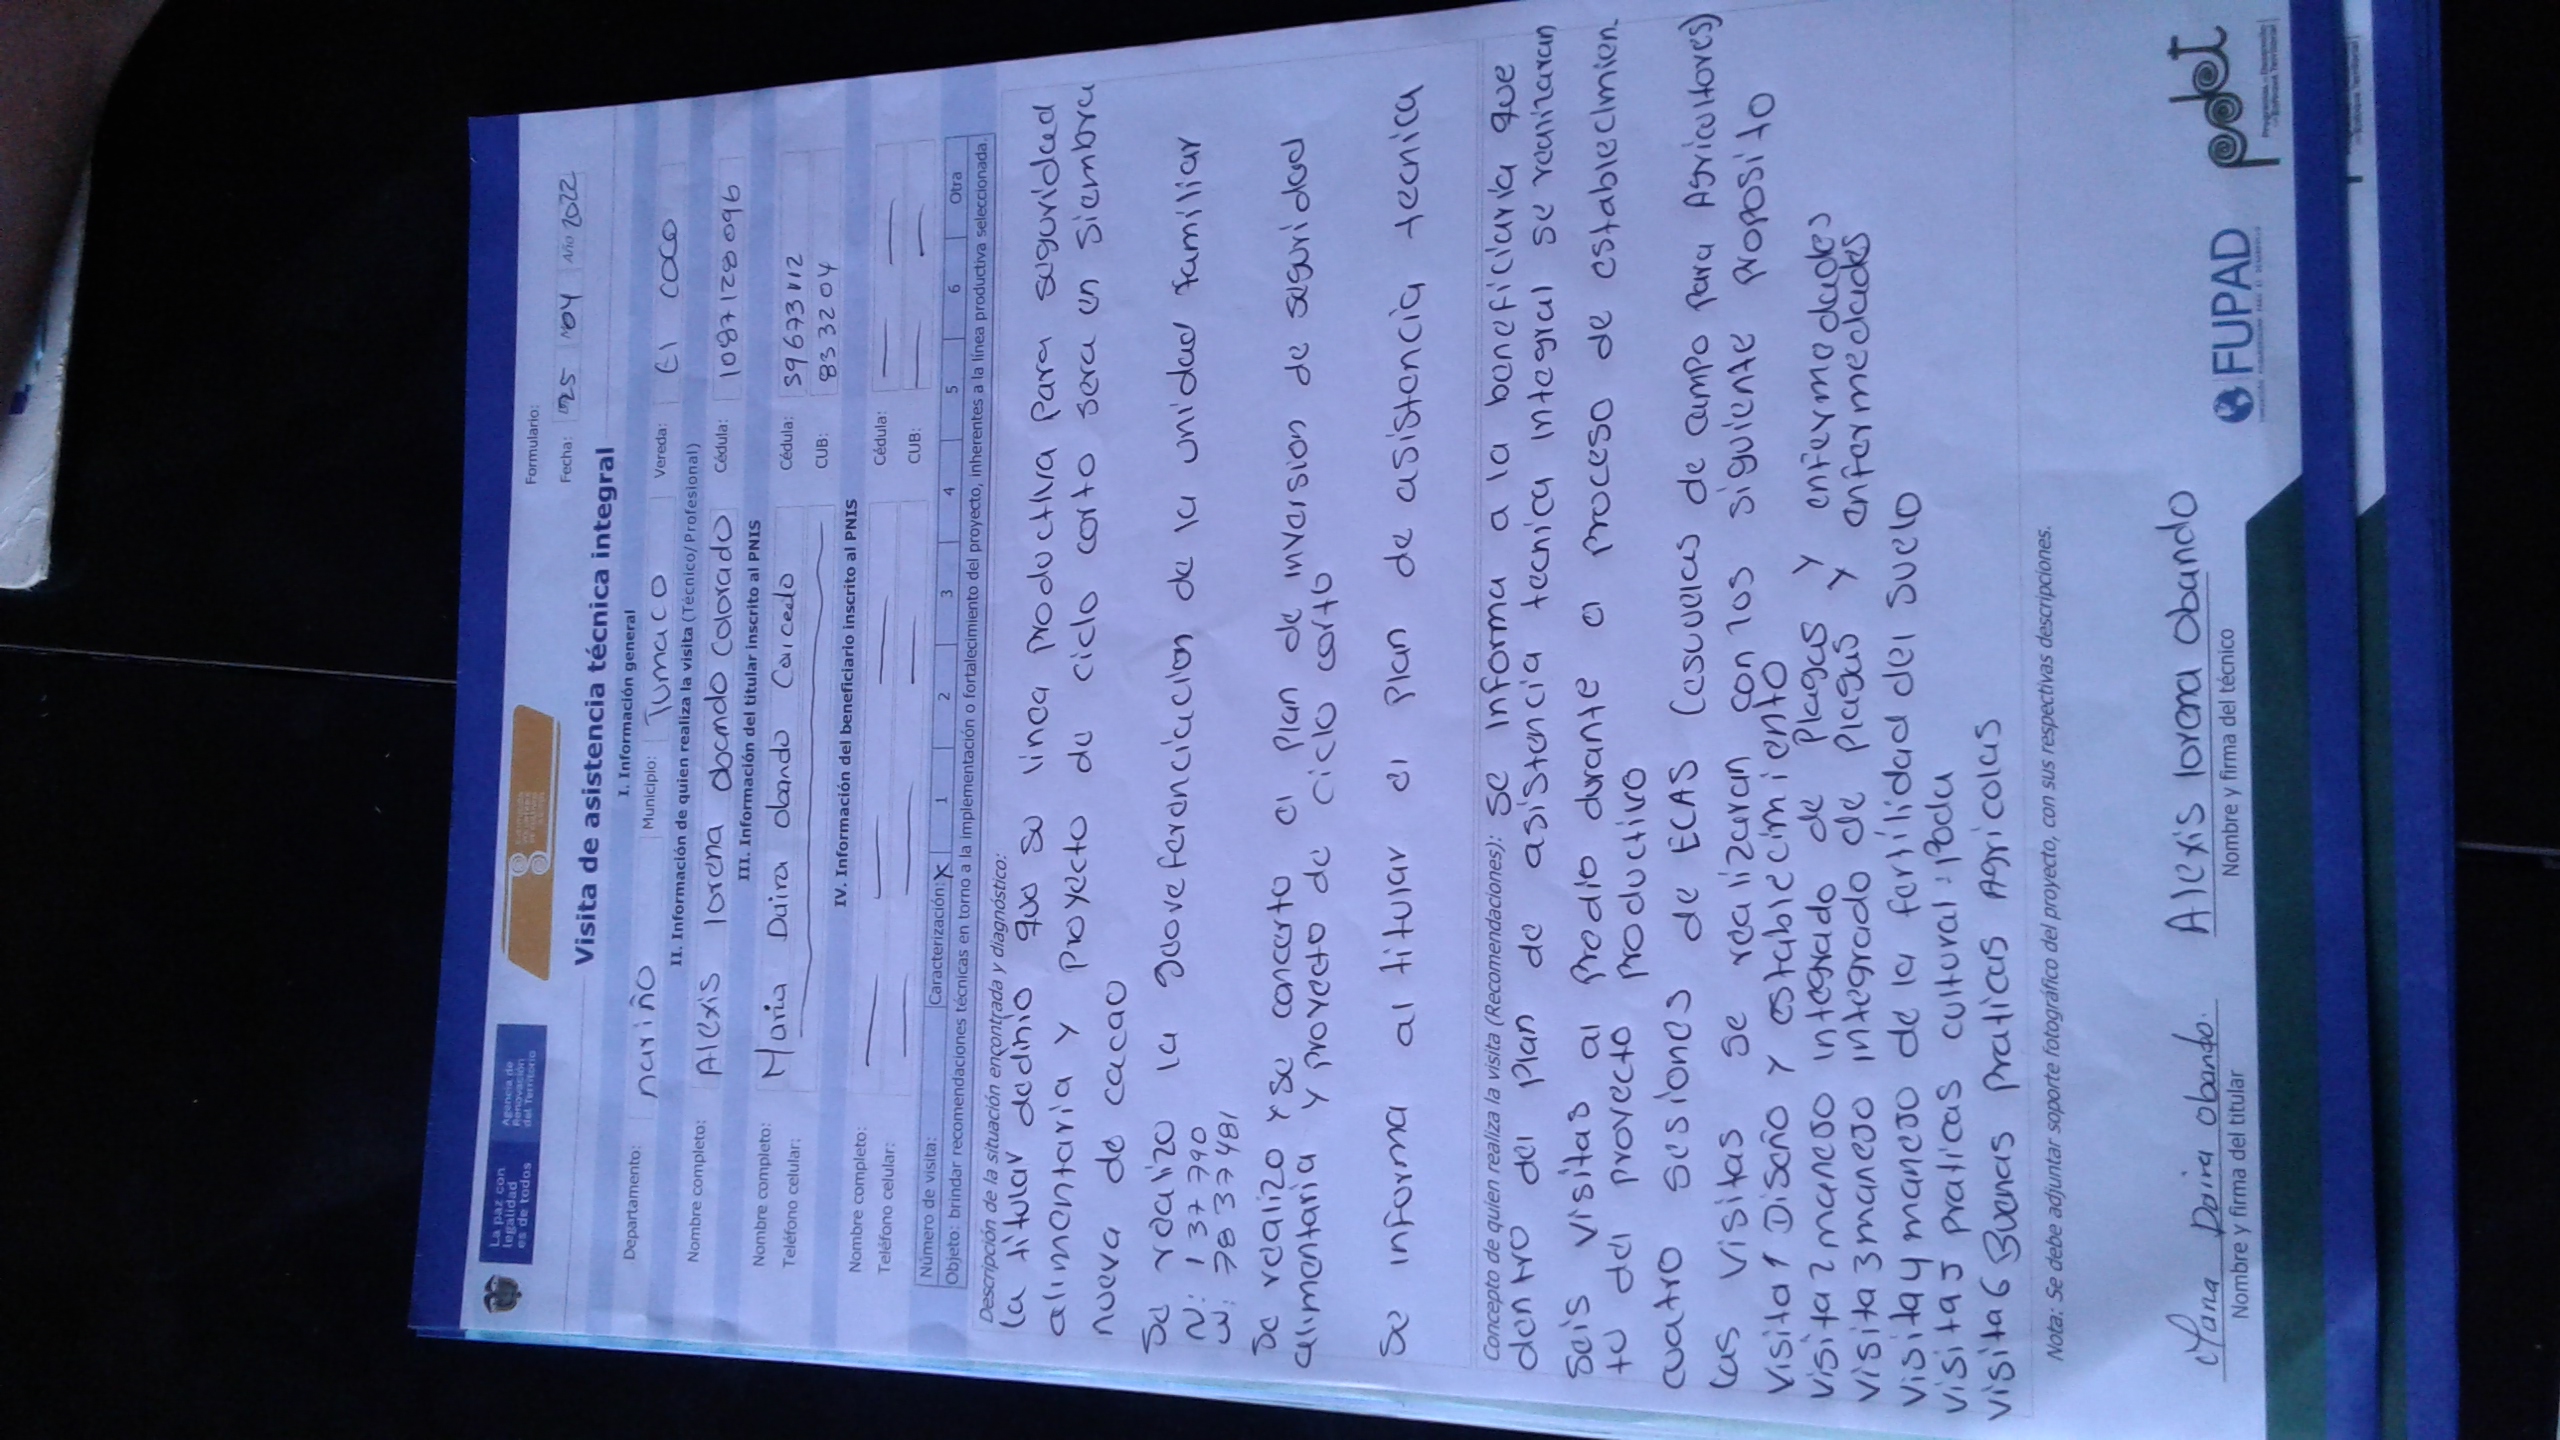 La paz con
legalidad
es de todos
Agencia de
Renovación
del Territorio
Formulario:
Fecha: 25 Nov Año 2022
Visita de asistencia técnica integral
I. Información general
Departamento: nariño Municipio: Tumaco Vereda: El coco
II. Información de quien realiza la visita (Técnico/Profesional)
Nombre completo: Alexis lorena obando colorado Cédula: 1087128096
III. Información del titular inscrito al PNIS
Nombre completo: Maria Daira obando Caicedo Cédula: 59673112
Teléfono celular: CUB: 833204
IV. Información del beneficiario inscrito al PNIS
Nombre completo: Cédula:
Teléfono celular: CUB:
Número de visita: Caracterización: X 1 2 3 4 5 6 Otra
Objeto: brindar recomendaciones técnicas en torno a la implementación o fortalecimiento del proyecto, inherentes a la línea productiva seleccionada.
Descripción de la situación encontrada y diagnóstico:
la titular dedinio que su linea productiva para seguridad
alimentaria y proyecto de ciclo corto sera en siembra
nueva de cacao
Se realizo la georeferenciacion de la unidad familiar
N: 137790
W: 7837481
Se realizo y se concerto el plan de inversion de seguridad
alimentaria y proyecto de ciclo corto
Se informa al titular el plan de asistencia tecnica
Concepto de quien realiza la visita (Recomendaciones): se informa a la beneficiaria que
dentro del plan de asistencia tecnica integral se realizaran
seis visitas al predio durante el proceso de establecimien
to del proyecto productivo
cuatro sesiones de ECAS (esuuelas de campo para Agricultores)
las visitas se realizaran con los siguiente proposito
visita 1 Diseño y establecimiento
visita 2 manejo integrado de plagas y enfermedades
visita 3 manejo integrado de plagas y enfermedades
visita 4 manejo de la fertilidad del suelo
visita 5 praticas cultural: Poda
visita 6 Buenas praticas Agricolas
Nota: Se debe adjuntar soporte fotográfico del proyecto, con sus respectivas descripciones.
Maria Daira obando. Alexis lorena obando
Nombre y firma del titular Nombre y firma del técnico
FUPAD
pdet